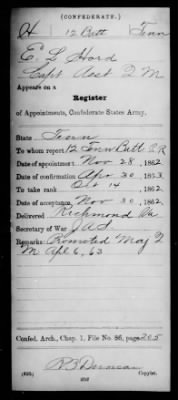 (CONFEDERATE.)
H 12 Batt Tenn
E. L. Hord
Capt Asst Q M
Appears on a
Register
of Appointments, Confederate States Army,
State Tenn
To whom report 12 Tenn Batt C.R
Date of appointment Nov 28, 1862
Date of confirmation Apr 30, 1863.
To take rank Oct 14, 1862
Date of acceptance Nov 30, 1862
Delivered Richmond Va
Secretary of War J A S
Remarks: Promoted Maj Q
M Apl 6, 63
Confed. Arch., Chap. 1, File No. 86, page 205
(635) Copyist.